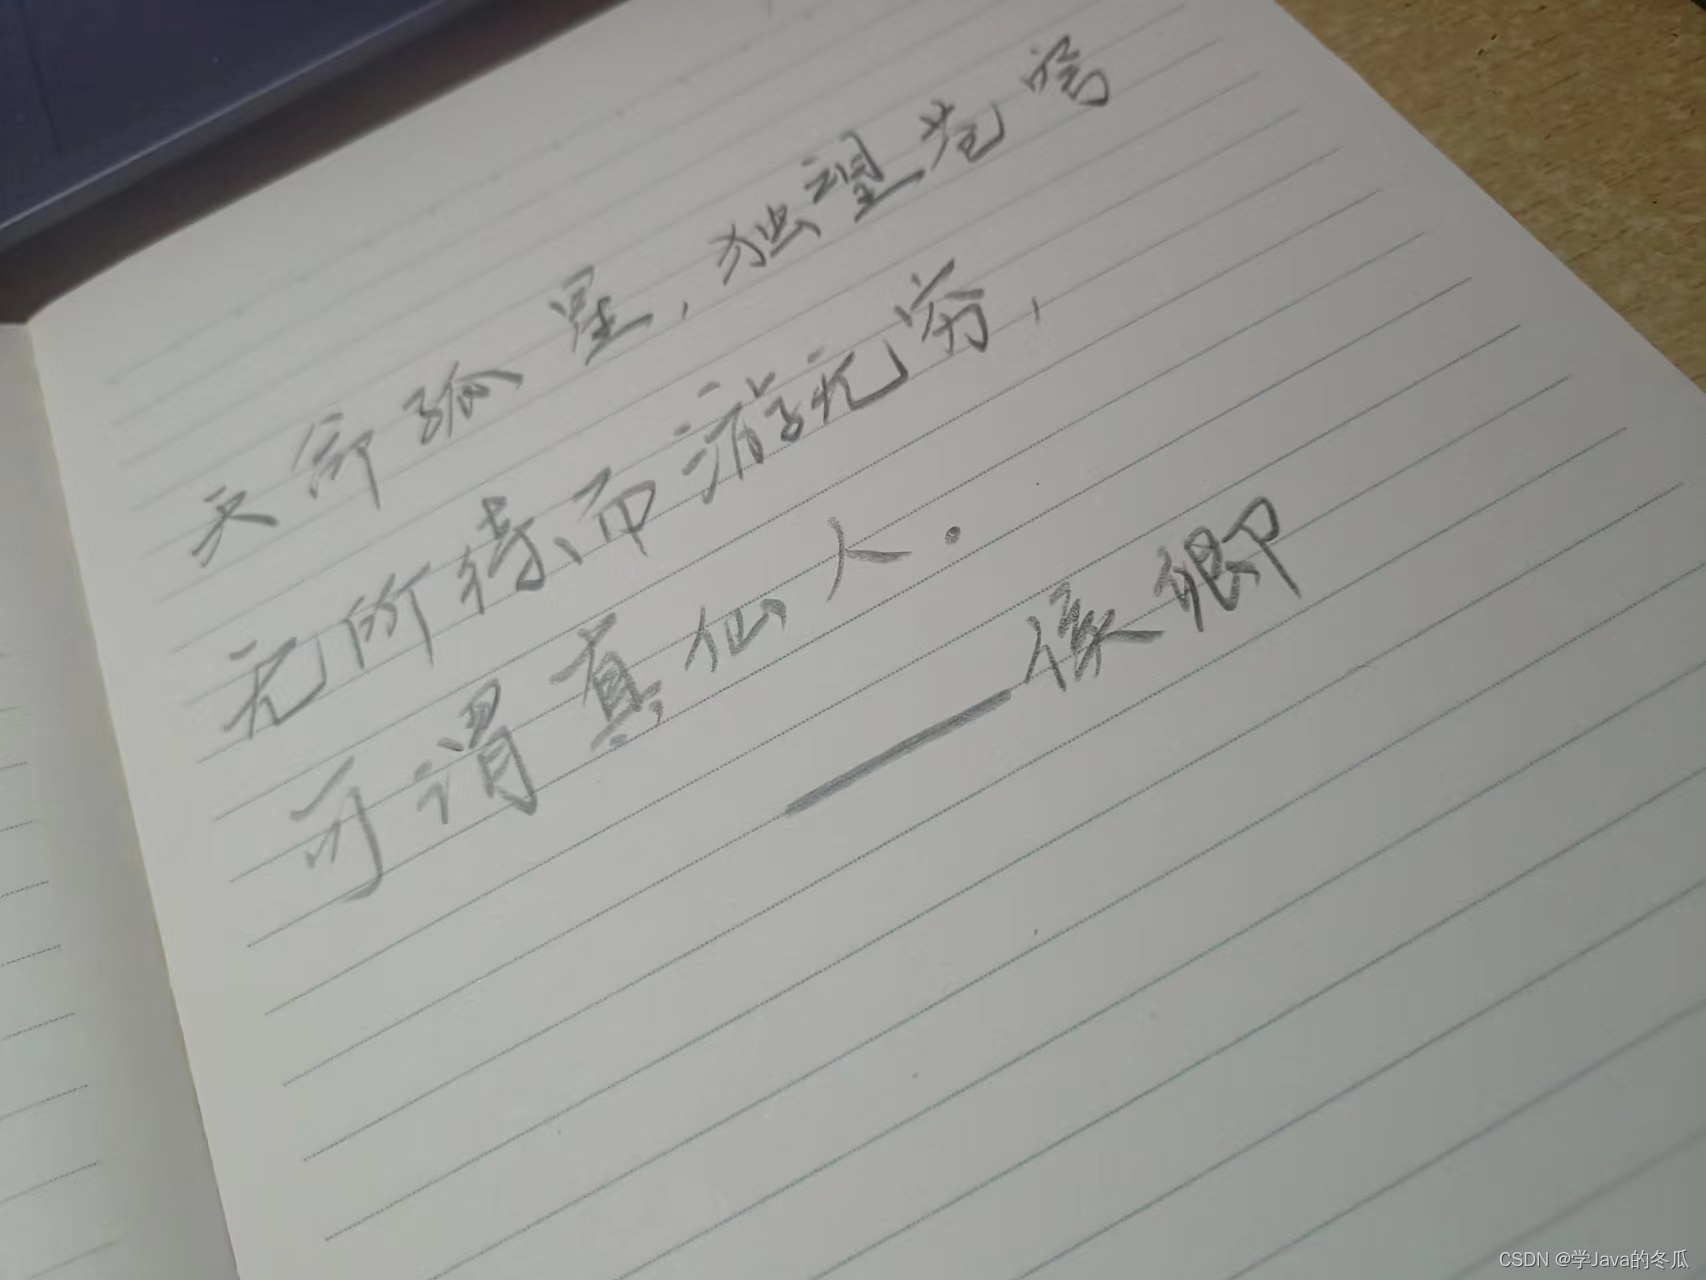 天命孤星，独望苍穹
无所待而游无穷，
可谓真仙人.
——侯卿
CSDN @学Java的冬瓜